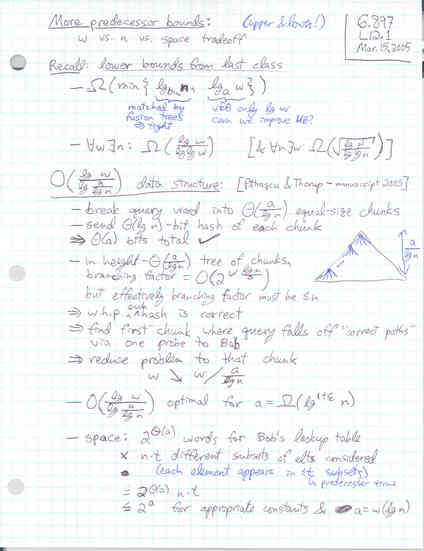 More predecessor bounds: (upper & lower!)
w vs. n vs. space tradeoff
6.897
L12.1
Mar. 15, 2005
Recall: lower bounds from last class
— Ω(min{ lg_w n, lg_a w })
matched by fusion trees ⇒ tight
vEB only lg w
can we improve UB?
— ∀w ∃n: Ω(lg w / lg lg w) [& ∀n ∃w: Ω(√(lg n / lg lg n))]
O(lg w / lg (a / lg n)) data structure: [Pǎtraşcu & Thorup – manuscript 2005]
— break query word into Θ(a / lg n) equal-size chunks
— send Θ(lg n)-bit hash of each chunk
⇒ Θ(a) bits total ✓
— in height-Θ(a / lg n) tree of chunks,
branching factor = O(2^(w lg n / a))
but effectively branching factor must be ≤ n
⇒ w.h.p. each hash is correct
⇒ find first chunk where query falls off "correct paths"
via one probe to Bob
⇒ reduce problem to that chunk
w ↘ w / (a / lg n)
a / lg n
— O(lg w / lg (a / lg n)) optimal for a = Ω(lg^(1+ε) n)
— space: 2^Θ(a) words for Bob's lookup table
× n·t different subsets of elts considered
(each element appears in ≤t subsets)
in predecessor terms
= 2^Θ(a) n·t
≤ 2^a for appropriate constants & a = ω(lg n)